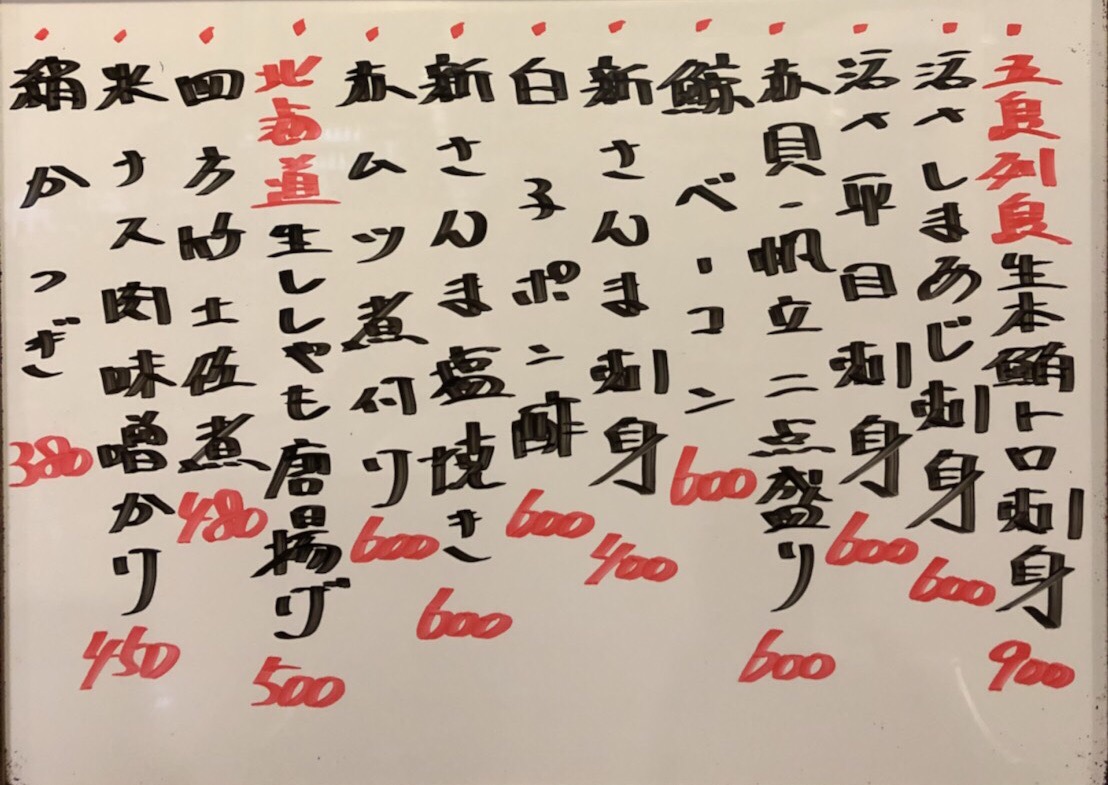 五島列島生本鮪トロ刺身 900
活〆しまあじ刺身 600
活〆平目刺身 600
赤貝・帆立二点盛り 600
鯨ベーコン 600
新さんま刺身 400
白子ポン酢 600
新さんま塩焼き 600
赤ムツ煮付け 600
北海道生ししゃも唐揚げ 500
四方竹土佐煮 480
水ナス肉味噌かけ 450
絹かつぎ 380